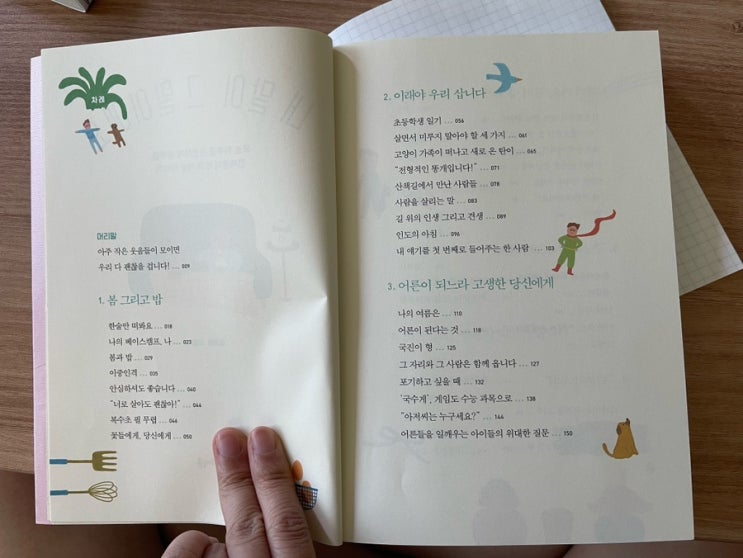 차례
머리말
아주 작은 웃음들이 모이면
우리 다 괜찮을 겁니다! ... 009
1. 봄 그리고 밤
한술만 떠봐요 ... 018
나의 베이스캠프, 나 ... 023
봄과 밤 ... 029
이중인격 ... 035
안심하셔도 좋습니다 ... 040
"너로 살아도 괜찮아!" ... 044
복수초 필 무렵 ... 046
꽃들에게, 당신에게 ... 050
2. 이래야 우리 삽니다
초등학생 일기 ... 056
살면서 미루지 말아야 할 세 가지 ... 061
고양이 가족이 떠나고 새로 온 탄이 ... 065
"전형적인 똥개입니다!" ... 071
산책길에서 만난 사람들 ... 078
사람을 살리는 말 ... 083
길 위의 인생 그리고 견생 ... 089
인도의 아침 ... 096
내 얘기를 첫 번째로 들어주는 한 사람 ... 103
3. 어른이 되느라 고생한 당신에게
나의 여름은 ... 110
어른이 된다는 것 ... 118
국진이 형 ... 125
그 자리와 그 사람은 함께 옵니다 ... 127
포기하고 싶을 때 ... 132
'국수개', 게임도 수능 과목으로 ... 138
"아저씨는 누구세요?" ... 144
어른들을 일깨우는 아이들의 위대한 질문 ... 150